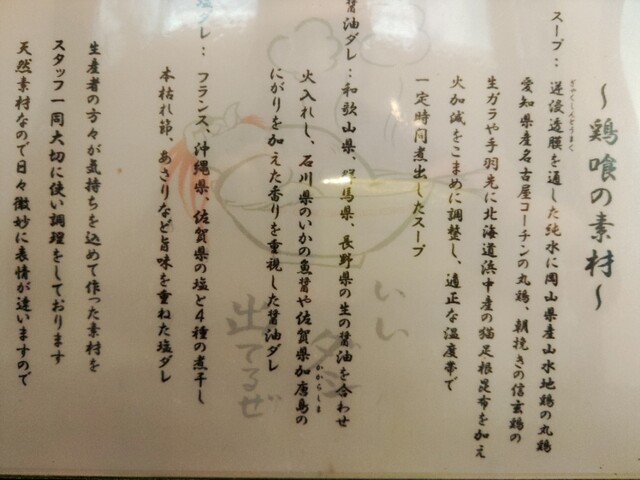 ～鶏喰の素材～
スープ：逆浸透膜を通した純水に岡山県産山水地鶏の丸鶏
ぎゃくしんとうまく
愛知県産名古屋コーチンの丸鶏、朝挽きの信玄鶏の
生ガラや手羽先に北海道浜中産の猫足根昆布を加え
火加減をこまめに調整し、適正な温度帯で
一定時間煮出したスープ
醤油ダレ：和歌山県、群馬県、長野県の生の醤油を合わせ
火入れし、石川県のいかの魚醤や佐賀県加唐島の
かからしま
にがりを加えた香りを重視した醤油ダレ
塩ダレ：フランス、沖縄県、佐賀県の塩と4種の煮干し
本枯れ節、あさりなど旨味を重ねた塩ダレ
生産者の方々が気持ちを込めて作った素材を
スタッフ一同大切に使い調理をしております
天然素材なので日々微妙に表情が違いますので
いい
ダシ
出てるぜ